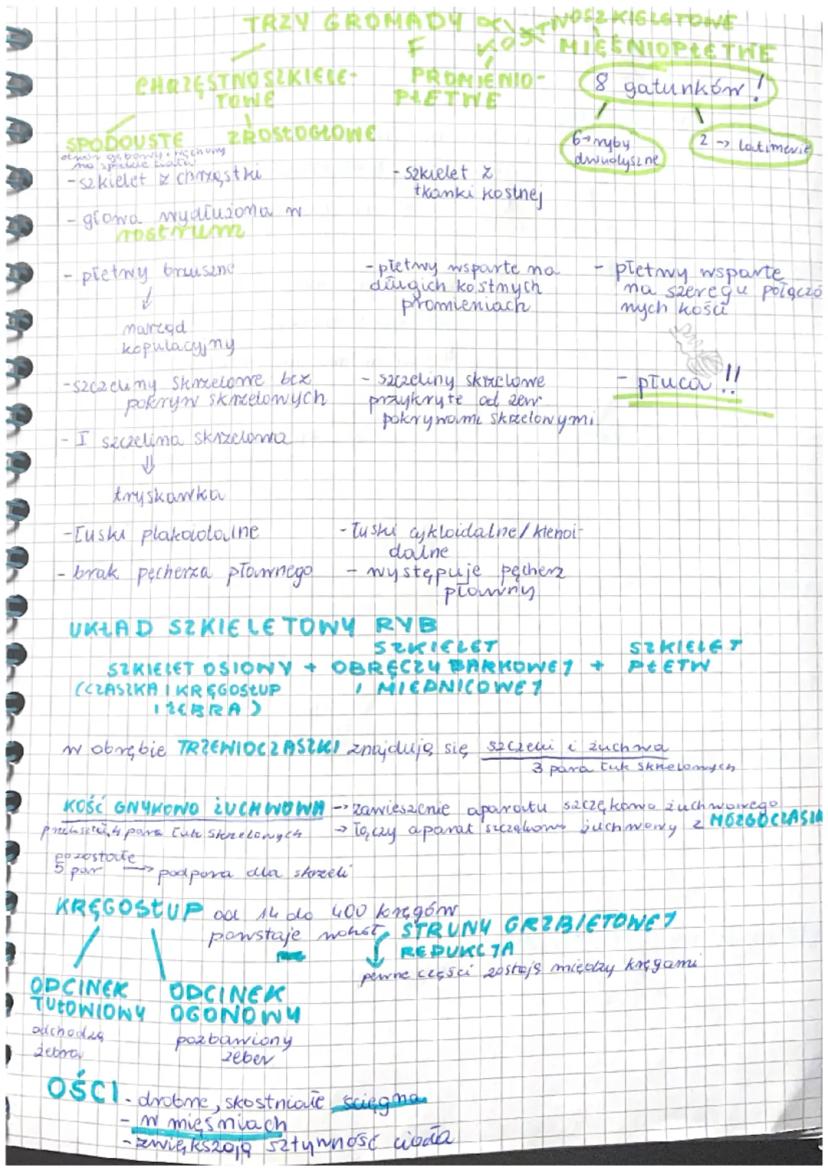 TRZY GROMADY
KOSTNOSZKIELETOWE
MIĘŚNIOPŁETWE
CHRZĘSTNOSZKIELE-
TOWE
PROMIENIO-
PŁETWE
8 gatunków!
SPODOUSTE ZROSŁOGŁOWE
6→ryby
dwudyszne
2 → latimerie
otwór gębowy i węchowy
na spodzie ciała
-szkielet z chrząstki
- szkielet z
tkanki kostnej
- głowa wydłużona w
rostrum
- płetwy brzuszne
↓
narząd
kopulacyjny
- płetwy wsparte na
długich kostnych
promieniach
- płetwy wsparte
na szeregu połączo
nych kości
-szczeliny skrzelowe bez
pokryw skrzelowych
- szczeliny skrzelowe
przykryte od zew
pokrywami skrzelowymi
- płuca!!
- I szczelina skrzelowa
⇓
tryskawka
-łuski plakoidalne
- łuski cykloidalne/ktenoi-
dalne
- brak pęcherza pławnego
- występuje pęcherz
pławny
UKŁAD SZKIELETOWY RYB
SZKIELET OSIOWY + SZKIELET OBRĘCZY BARKOWEJ I MIEDNICOWEJ + SZKIELET PŁETW
(CZASZKA I KRĘGOSŁUP
I ŻEBRA)
w obrębie TRZEWIOCZASZKI znajdują się szczęki i żuchwa
3 para łuk skrzelowych
KOŚĆ GNYKOWO ŻUCHWOWA → zawieszenie aparatu szczękowo żuchwowego
przekszt. 4 para łuk skrzelowych → łączy aparat szczękowo żuchwowy z MÓZGOCZASZK
pozostałe
5 par → podpora dla skrzeli
KRĘGOSŁUP od 14 do 400 kręgów
powstaje wokół STRUNY GRZBIETOWEJ
↓ REDUKCJA
pewne części zostają między kręgami
ODCINEK
TUŁOWIOWY
odchodzą
żebra
ODCINEK
OGONOWY
pozbawiony
żeber
OŚCI - drobne, skostniałe ścięgna
- w mięśniach
- zwiększają sztywność ciała